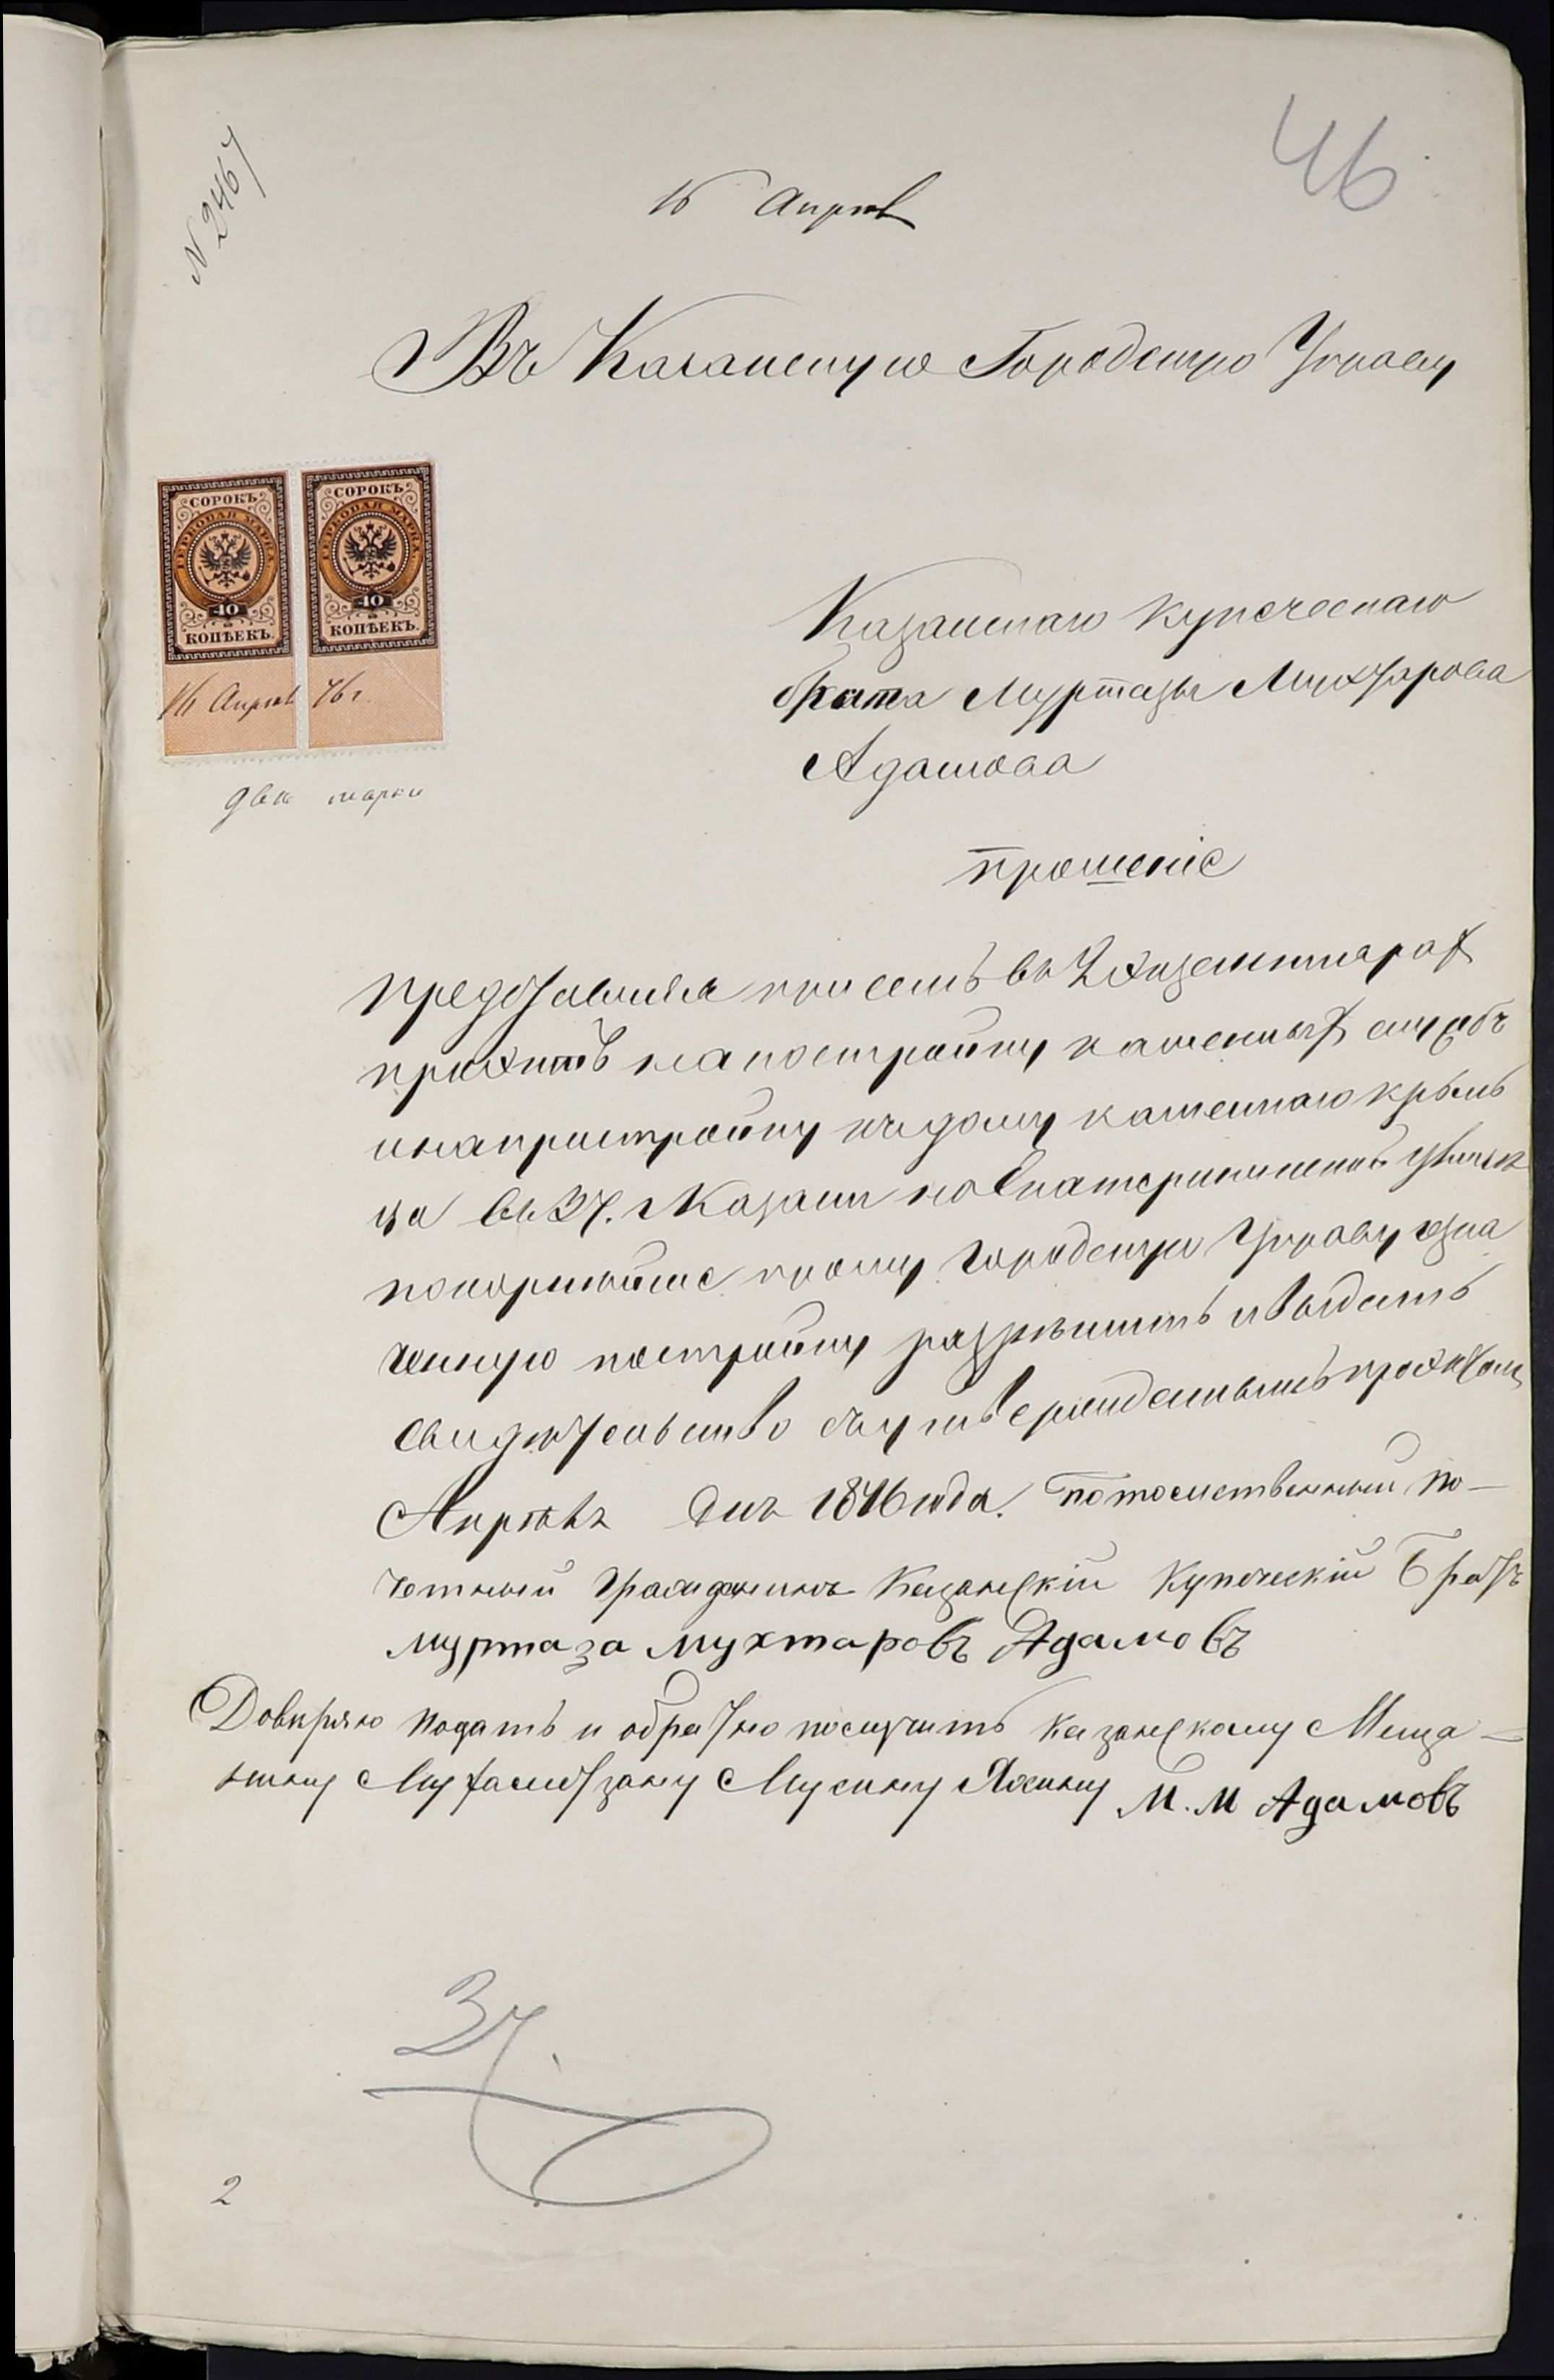 46
N 2467
16 Апрѣл
Въ Казанскую Городскую Управу
СОРОКЪ
ГЕРБОВАЯ МАРКА
40
КОПѢЕКЪ.
СОРОКЪ
ГЕРБОВАЯ МАРКА
40
КОПѢЕКЪ.
16 Апрѣл 76 г.
двѣ марки
Казанскаго купеческаго
брата Муртазы Мухтарова
Адамова
прошеніе
Представляя при семъ въ 2х экземплярах
проэктъ на постройку каменных службъ
и на пристройку къ дому каменнаго крыль
ца въ 3 ч. г. Казани по Екатерининской улицѣ
покорнѣйше прошу Городскую Управу озна
ченную постройку разрѣшить и выдать
свидѣтельство съ утвержденнымъ проэктом
Апрѣля дня 1876 года. Потомственный по-
четный Гражданинъ Казанскій Купеческій Братъ
Муртаза Мухтаровъ Адамовъ
Довѣряю подать и обратно получить Казанскому Меща-
нину Мусину Яхину М. М Адамовъ
3 ч.
2